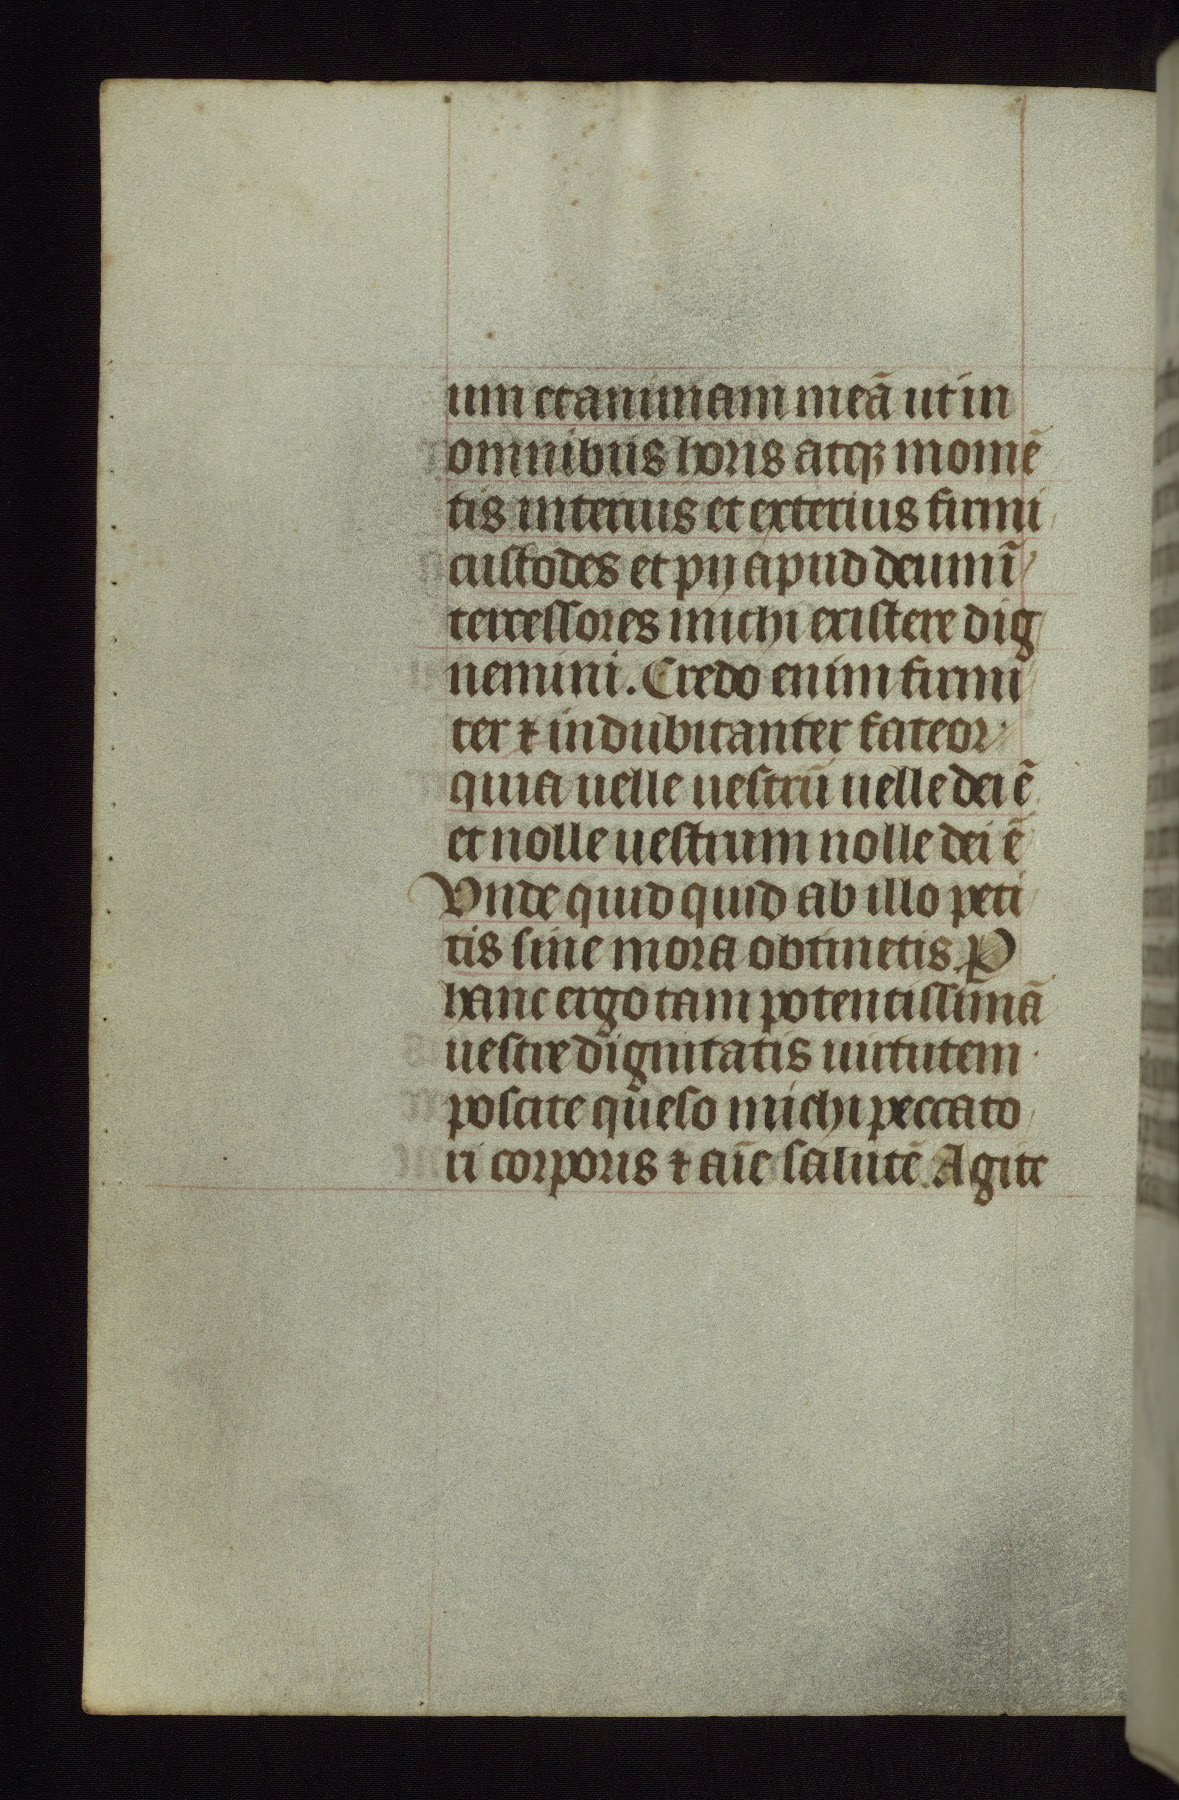 um et animam meā ut in
omnibus horis atqꝫ momē
tis interius et exterius firmi
custodes et pij apud deum ī
tercessores michi existere dig
nemini. Credo enim firmi
ter ⁊ indubitanter fateor
quia uelle uestrū uelle dei ē
et nolle uestrum nolle dei ē
Vnde quid quid ab illo peti
tis sine mora obtinetis. Ꝑ
hanc ergo tam potentissimā
uestre dignitatis uirtutem
poscite queso michi peccato
ri corporis ⁊ aīe salutē. Agite